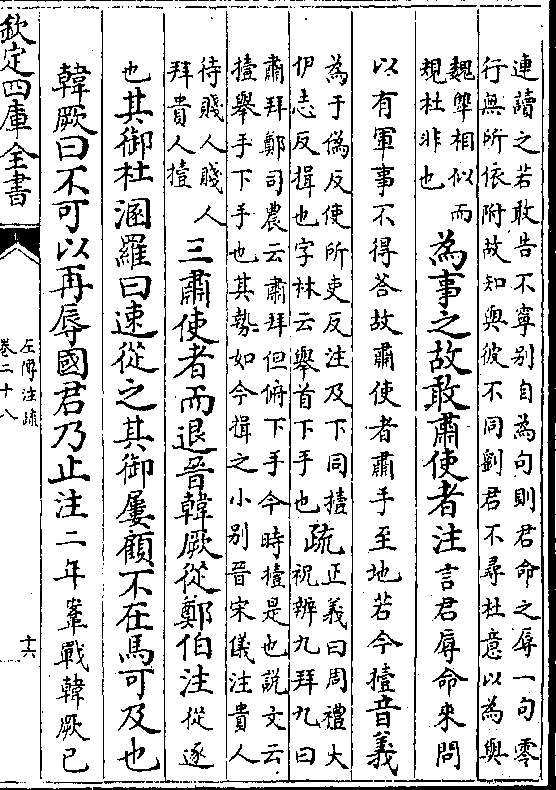 連讀之若敢告不寧别自為句則君命之辱一句零
行無所依附故知與彼不同劉君不尋杜意以為與
魏犨相似而
規杜非也
為事之故敢肅使者注言君辱命來問
以有軍事不得荅故肅使者肅手至地若今撎音義
為于偽反使所吏反注及下同撎
伊志反揖也字林云舉首下手也
疏
正義曰周禮大
祝辨九拜九曰
肅拜鄭司農云肅拜但俯下手今時撎是也說文云
撎舉手下手也其勢如今揖之小别晉宋儀注貴人
待賤人賤人
拜貴人撎
三肅使者而退晉韓厥從鄭伯注從逐
也其御杜溷羅曰速從之其御屢顧不在馬可及也
韓厥曰不可以再辱國君乃止注二年鞌戰韓厥已
欽定四庫全書
左傳注疏
卷二十八
十六